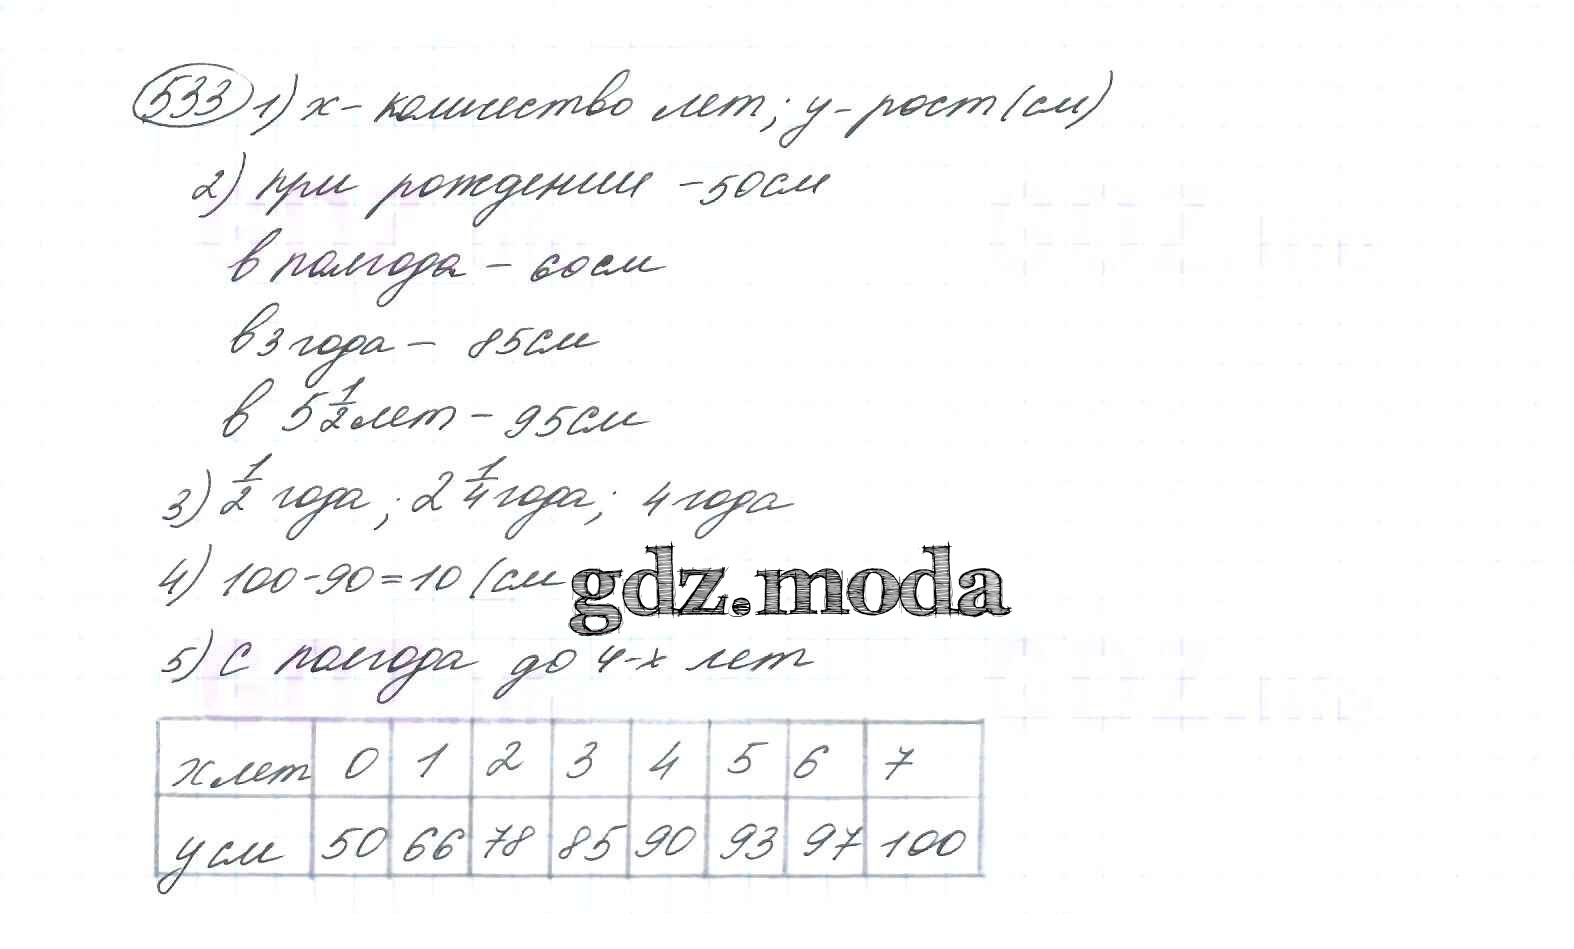 533 1) х - количество лет; у - рост (см)
2) при рождении - 50 см
в полгода - 60 см
в 3 года - 85 см
в 5 1/2 лет - 95 см
3) 1/2 года; 2 1/4 года; 4 года
4) 100 - 90 = 10 (см
gdz.moda
5) С полгода до 4-х лет
х лет 0 1 2 3 4 5 6 7
у см 50 66 78 85 90 93 97 100